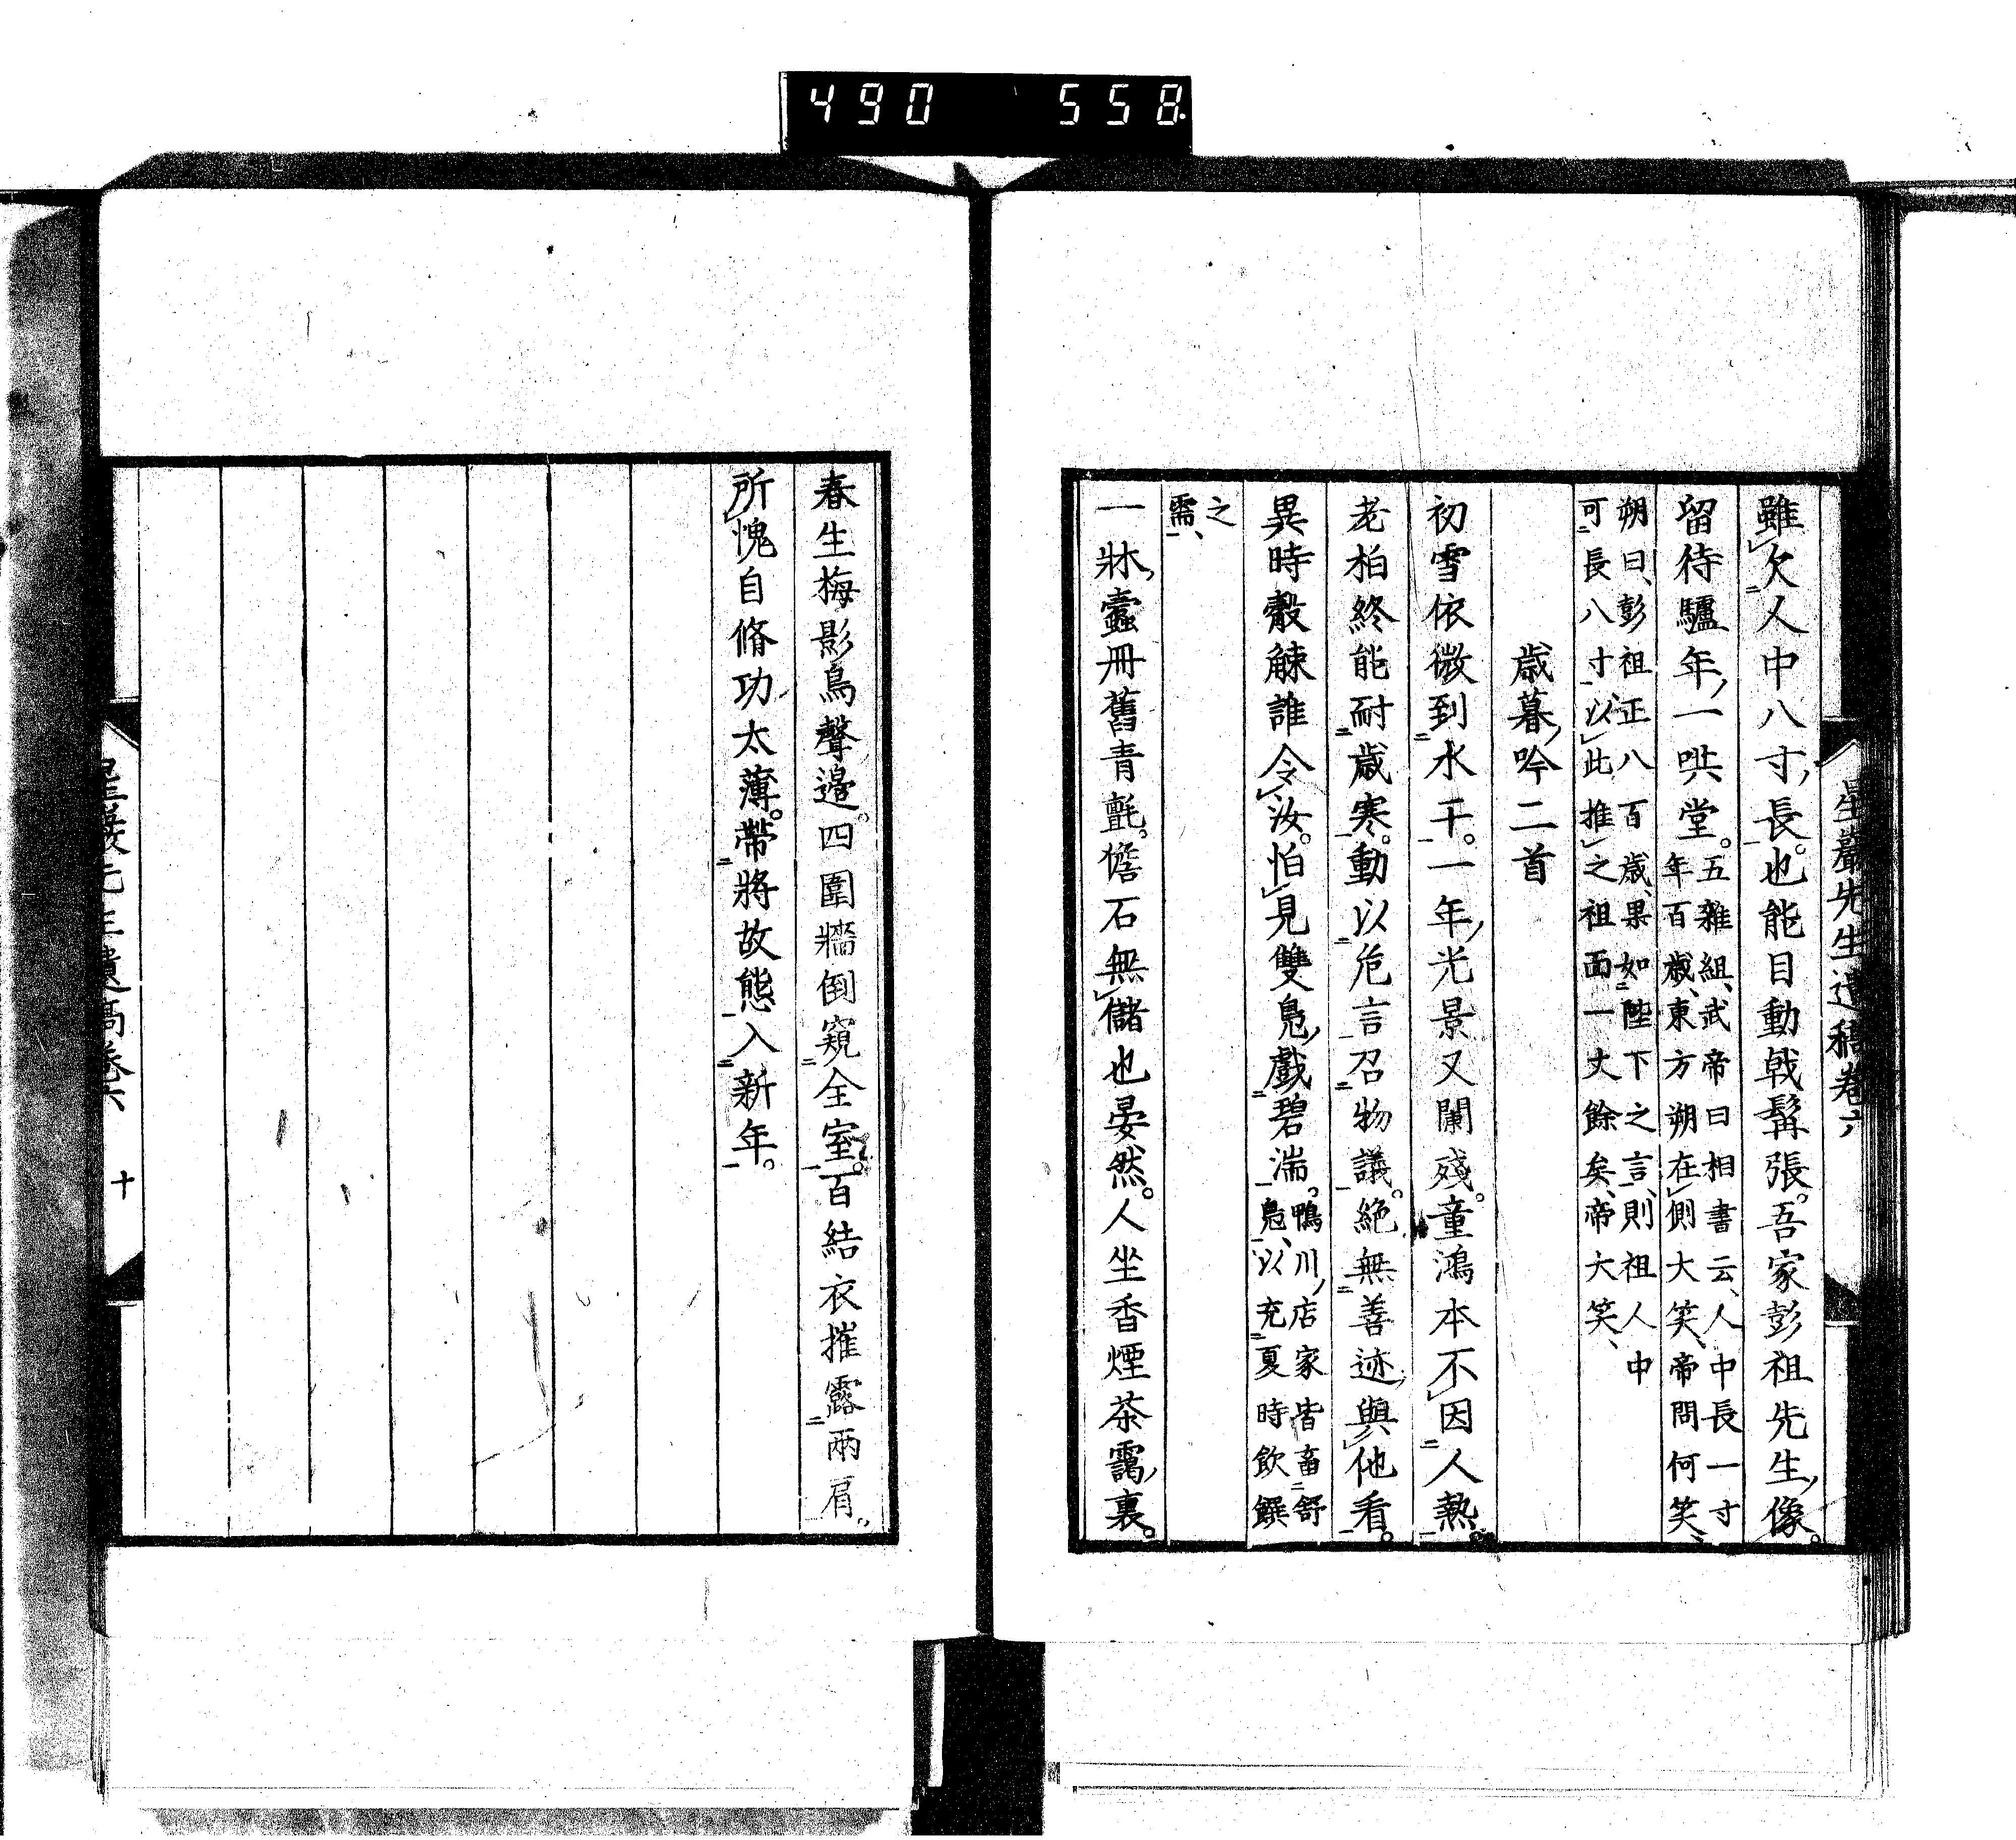 490 558
星巖先生遺稿卷六
雖欠人中八寸長。也能目動戟髯張。吾家彭祖先生像。
留待驢年一哄堂。五雜組、武帝曰相書云、人中長一寸
年百歲、東方朔在側大笑、帝問何笑、
朔曰、彭祖正八百歲、果如陛下之言、則祖人中
可長八寸、以此推之祖面一丈餘矣、帝大笑、
歲暮吟二首
初雪依微到水干。一年光景又闌殘。童鴻本不因人熱。
老柏終能耐歲寒。動以危言召物議。絕無善迹與他看。
異時觳觫誰令汝。怕見雙鳧戲碧湍。鴨川店家皆畜舒
鳧、以充夏時飲饌
之
需、
一牀蠹冊舊青氈。儋石無儲也晏然。人坐香煙茶靄裏。
春生梅影鳥聲邊。四圍牆倒窺全室。百結衣摧露兩肩。
所愧自脩功太薄。帶將故態入新年。
星巖先生遺稿卷六
十